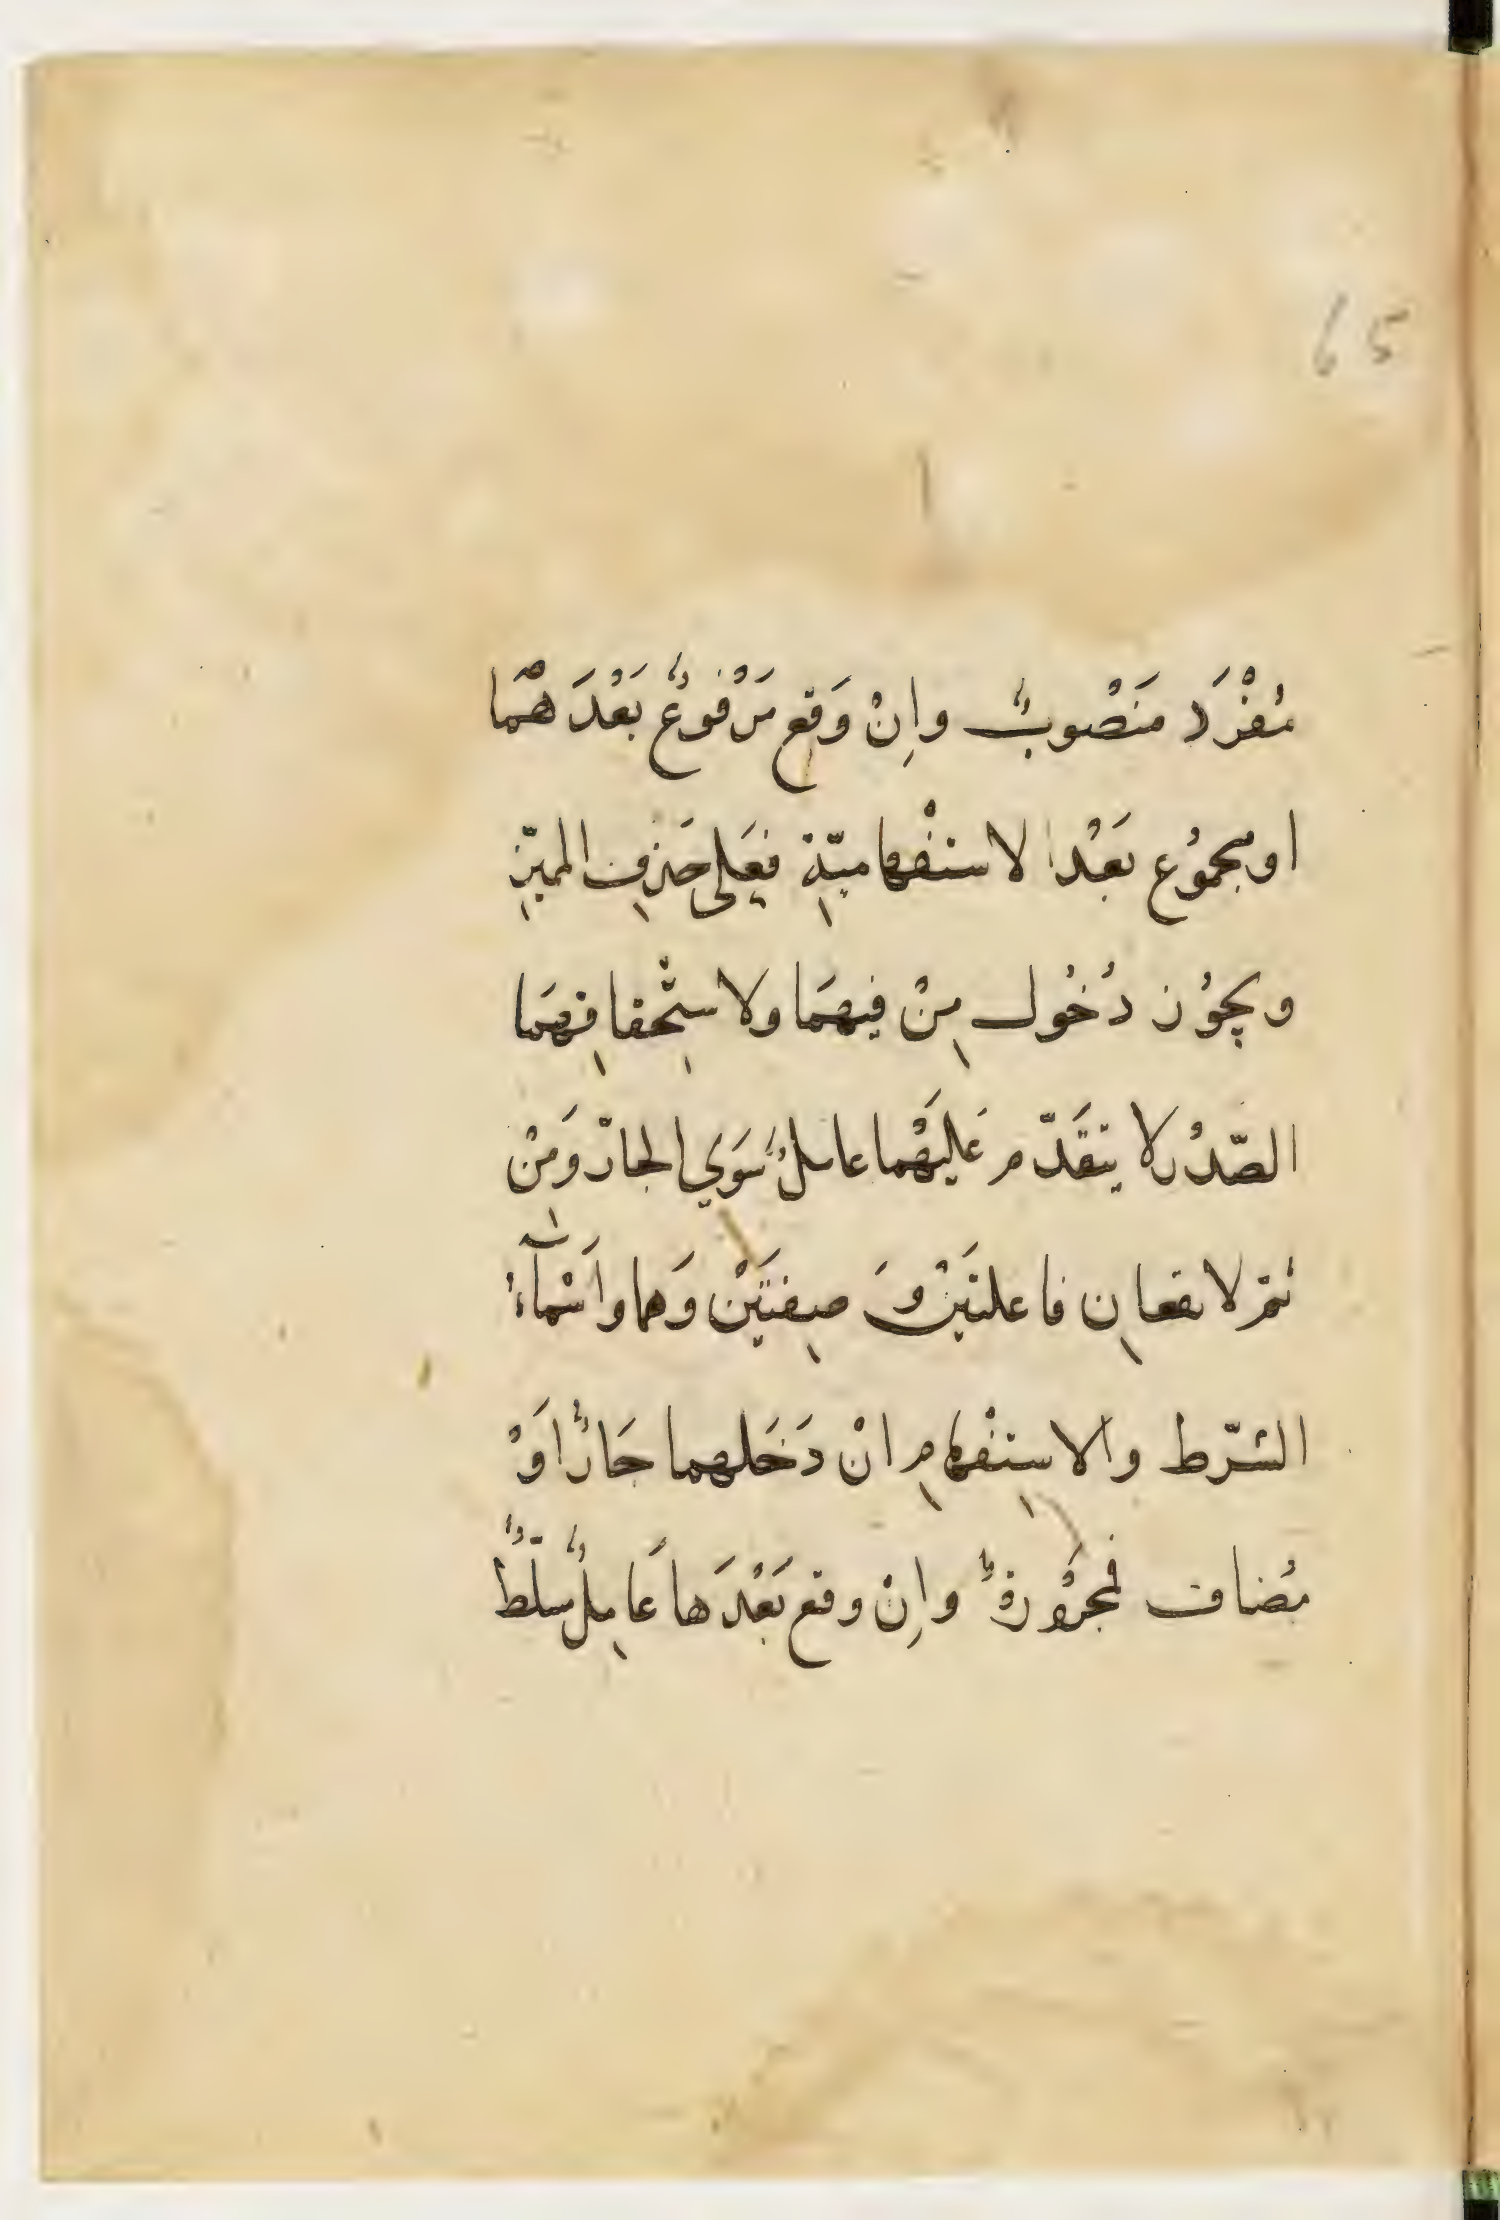 65
مُفْرَد مَنْصُوبٌ وإنْ وَقع مَرْفوعٌ بَعْدَ هُمَا
او مجموُع بَعْدَ الاستفْهاميّةِ فعَلى حَذفِ المميّزِ
ويجوُز دُخُول مِنْ فيهمَا ولاستِحْقاقِهمَا
الصّدْر لا يتقَدّم عَليهْما عاملٌ سَوي الجارّ وَمنْ
ثمّ لا يقعانِ فاعلتَيْن وَ صِفتَيْن وَهما وأسْمآءُ
الشرّط والاستِفْهامِ انْ دَخَلهما جَارٌ اوْ
مُضاف فمجرُوُرةٌ وإنْ وقع بَعْدَها عَامِلٌ سلّطٌ